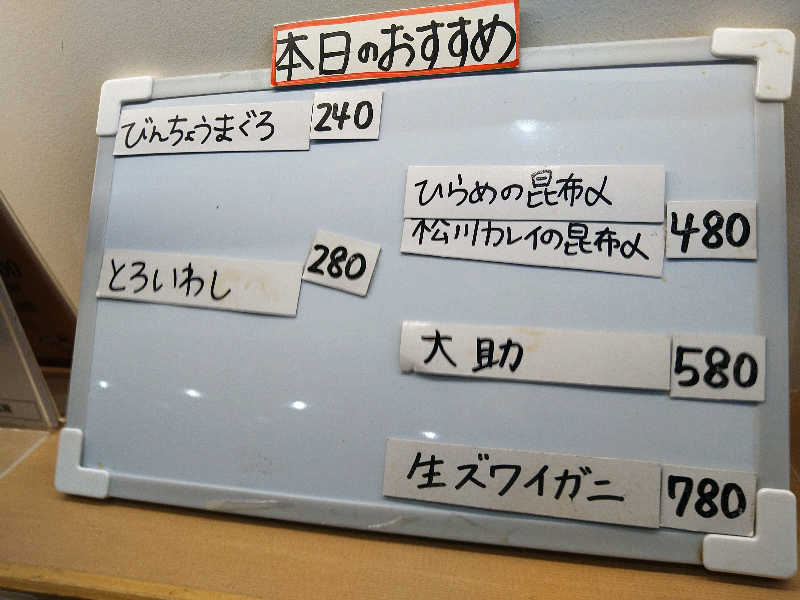 本日のおすすめ
びんちょうまぐろ 240
とろいわし 280
ひらめの昆布〆
松川カレイの昆布〆 480
大助 580
生ズワイガニ 780